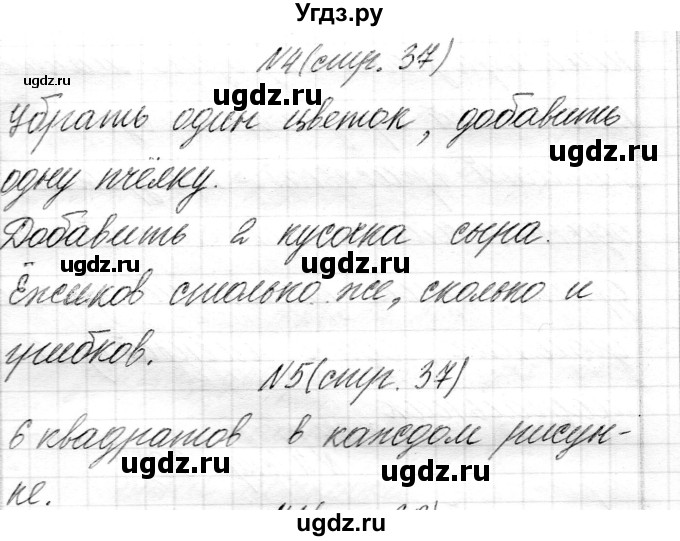 Угдз.ру
N4(стр. 37)
Убрать один цветок, добавить
одну пчёлку.
Добавить 2 кусочка сыра.
Ёжиков столько же, сколько и
грибков.
N5(стр. 37)
6 квадратов в каждом рисун-
ке.
ugdz.ru
ugdz.ru
ugdz.ru
ugdz.ru
ugdz.ru
ugdz.ru
ugdz.ru
ugdz.ru
ugdz.ru